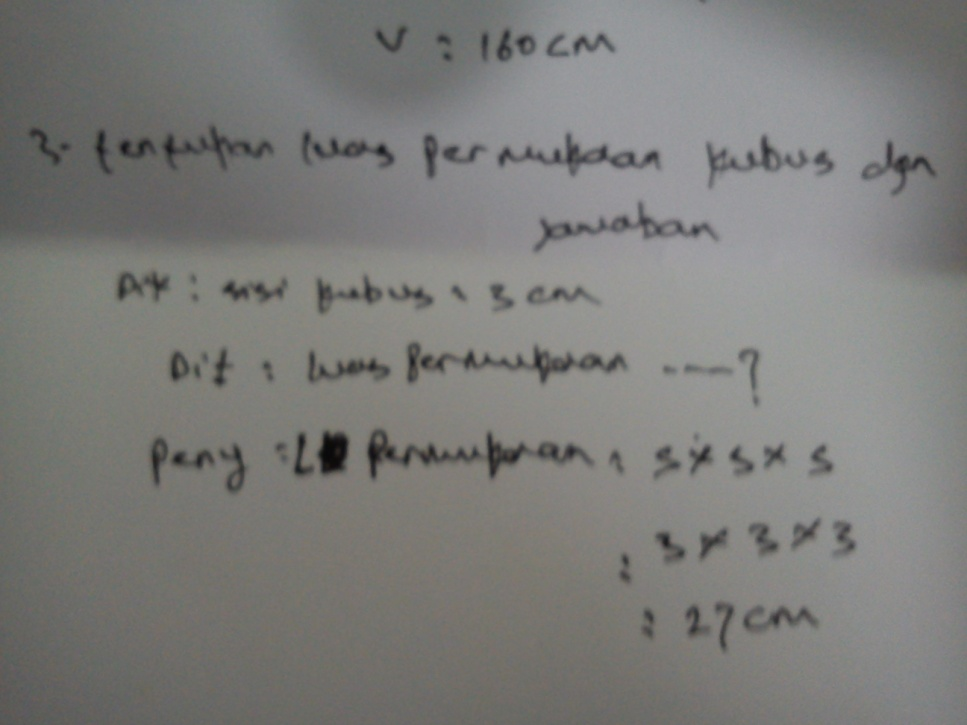 V : 160 cm
3. tentukan luas permukaan kubus dgn
jawaban
Dik : sisi kubus = 3 cm
Dit : luas permukaan ----?
Peny : L permukaan = s x s x s
: 3 x 3 x 3
: 27 cm